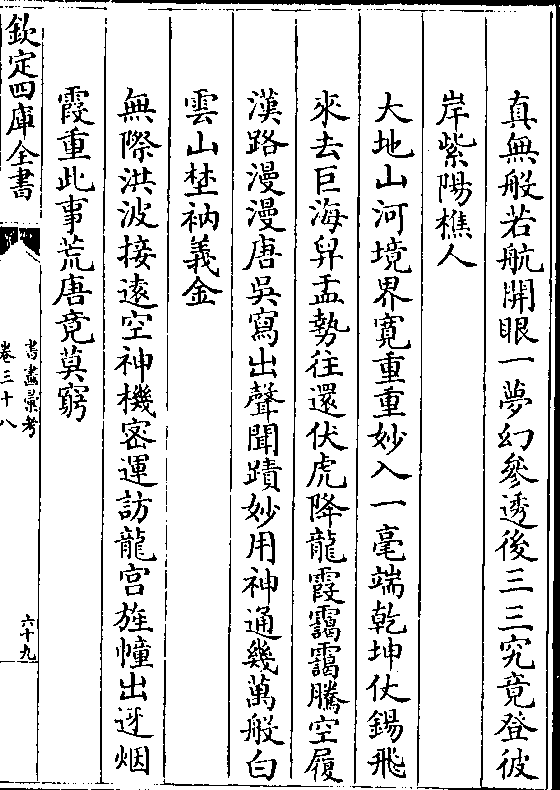 真無般若航開眼一夢幻參透後三三究竟登彼
岸紫陽樵人
大地山河境界寬重重妙入一毫端乾坤仗錫飛
來去巨海舁盂勢往還伏虎降龍霞靄靄騰空履
漢路漫漫唐吳寫出聲聞蹟妙用神通幾萬般白
雲山埜衲義金
無際洪波接遠空神機密運訪龍宮旌幢出迓烟
霞重此事荒唐竟莫窮
欽定四庫全書
書畫彙考
卷三十八
六十九